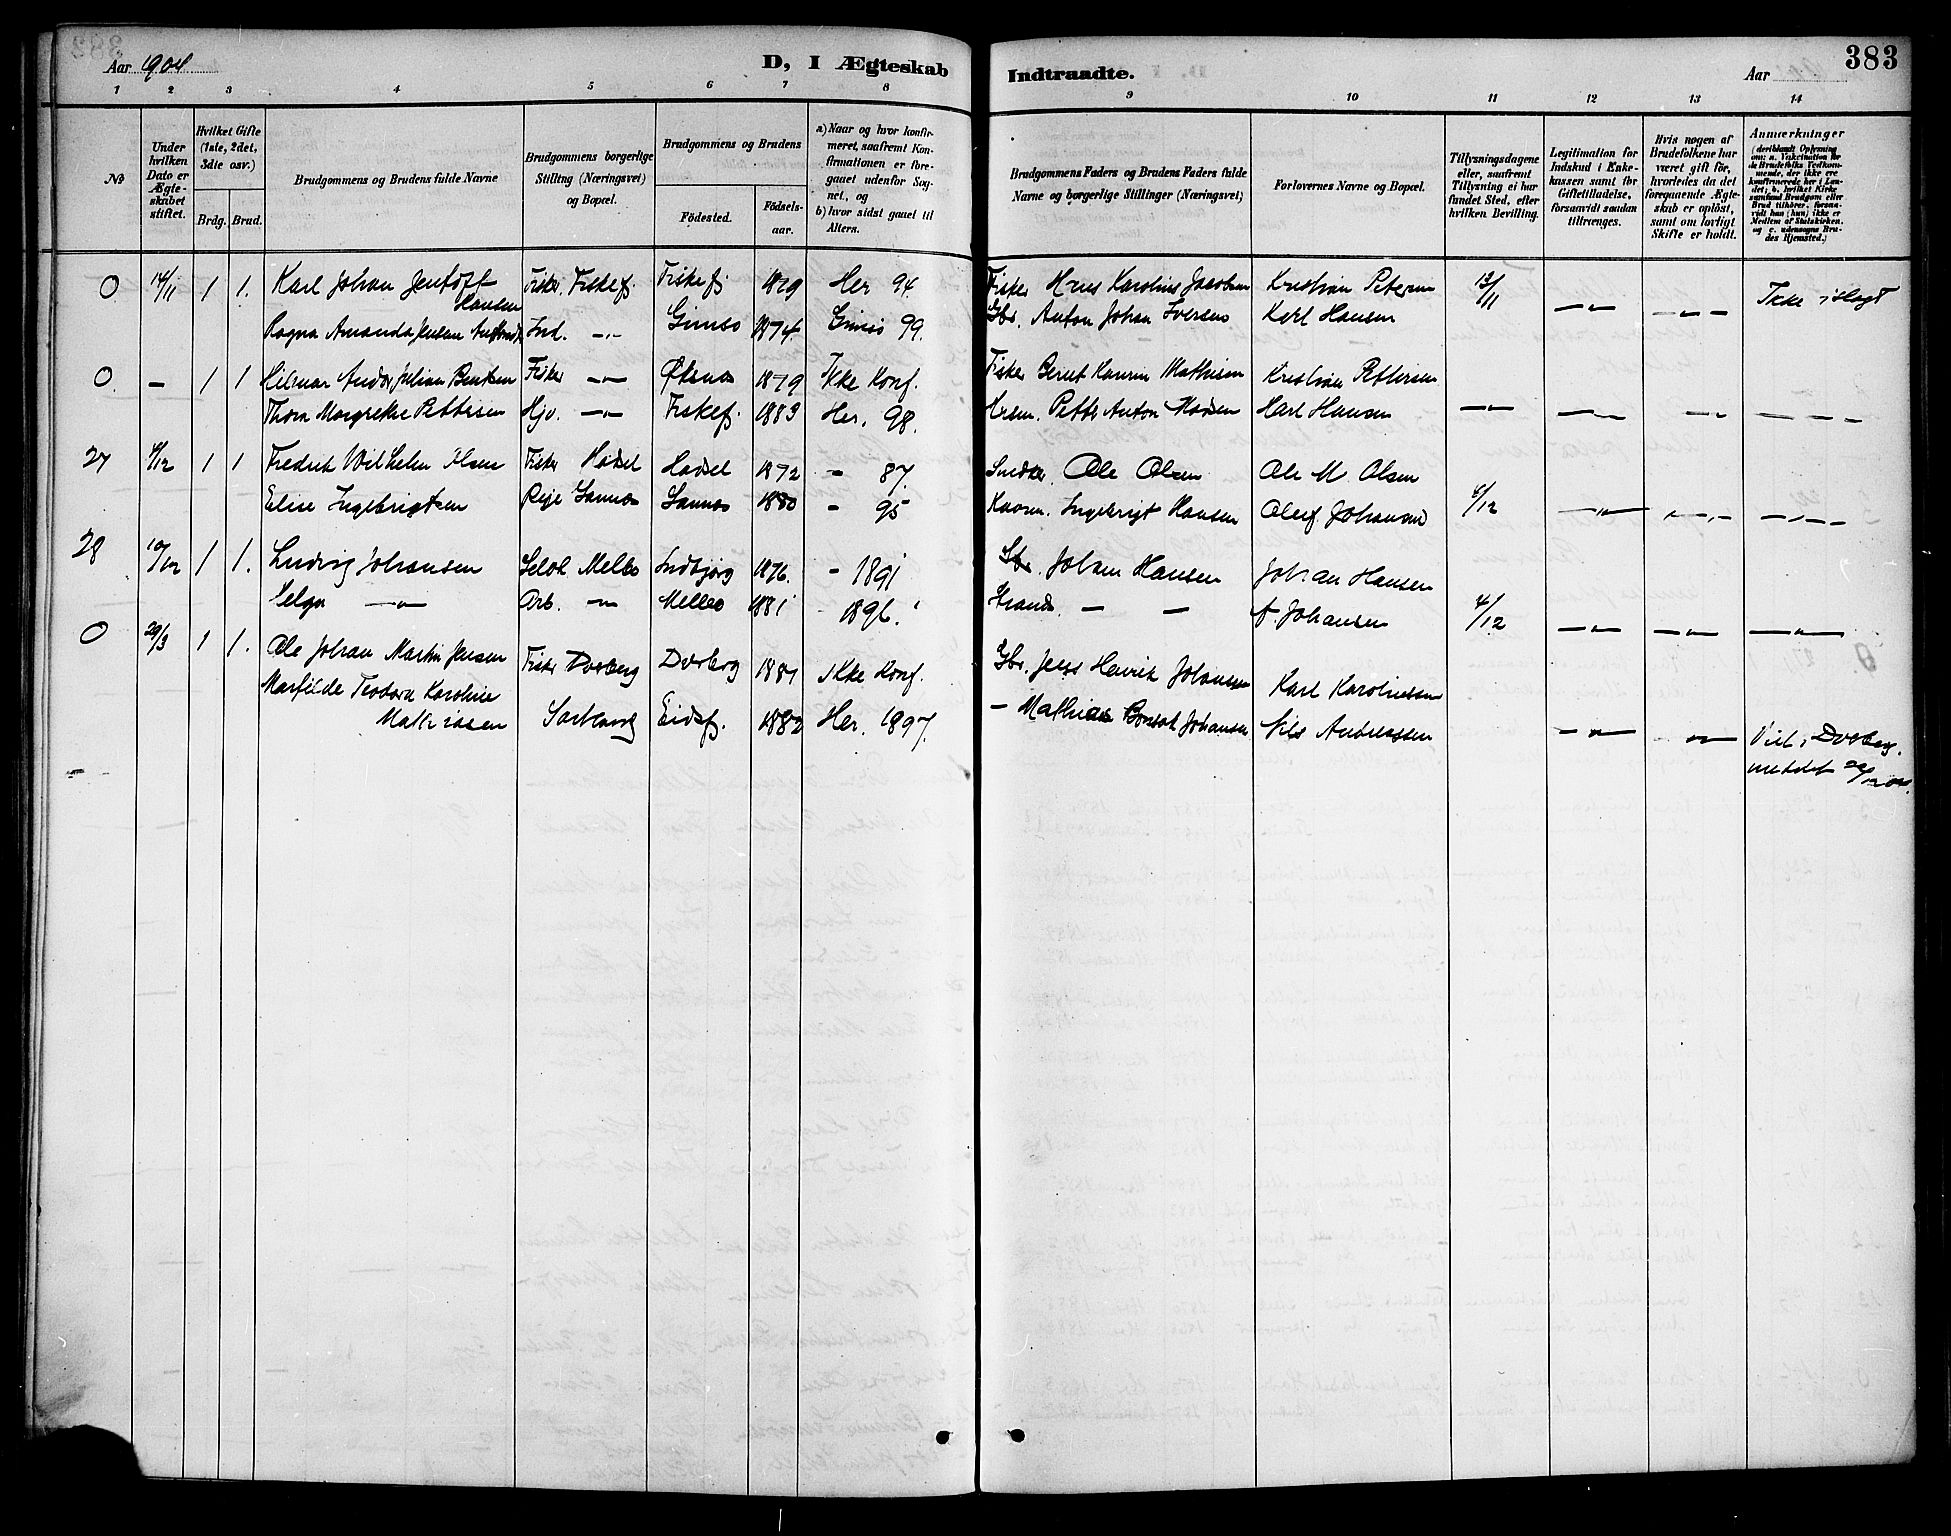 Aar 1904
D, I Ægteskab
Indtraadte.
Aar
383
1 2 3 4 5 6 7 8 9 10 11 12 13 14
No
Under hvilken Dato er Ægteskabet stiftet.
Hvilket Gifte (1ste, 2det, 3die osv.)
Brdg. Brud.
Brudgommens og Brudens fulde Navne
Brudgommens borgerlige Stilling (Næringsvei) og Bopæl.
Brudgommens og Brudens
Födested.
Födselsaar.
a) Naar og hvor konfirmeret, saafremt Konfirmationen er foregaaet udenfor Sognet, og
b) hvor sidst gaaet til Alters.
Brudgommens Faders og Brudens Faders fulde Navne og borgerlige Stillinger (Næringsvei)
Forlovernes Navne og Bopæl.
Tillysningsdagene eller, saafremt Tillysning ei har fundet Sted, efter hvilken Bevilling.
Legitimation for Indskud i Enkekassen samt for Giftetilladelse, forsaavidt saadan tiltrænges.
Hvis nogen af Brudefolkene har været gift för, hvorledes da det foregaaende Ægteskab er oplöst, samt om lovligt Skifte er holdt.
Anmærkninger
0 14/11 1 1. Karl Johan Jentoft Hansen Fisker. Fiskefj. Fiskefj 1879 Her 94. Fisker Hans Karolius Jacobsen Kristian Petersen 13/11
Ragna Amanda Jensen Ind. -"- Gimsø 1874. Gimsø 99. Gbr. Anton Johan Iversen Karl Hansen -"- -"- Ikke i Slægt
0. - 1 1 Hilmar Andor Julian Bentsen Fisker -"- Øksnes 1879 Ikke Konf. Fisker Bernt Kaurin Mathisen Kristian Pettersen
Thora Margrethe Pettersen Hjv. -"- Fiskefj. 1883 Her. 98. Husm. Petter Anton Madsen Karl Hansen -"- -"- -"- - - - -
27 4/12 1 1 Fredrik Wilhelm Olsen Fisker Hadsel Hadsel 1872 - 87. Snedker. Ole Olsen Ole M. Olsen
Elise Ingebrigtsen Pige Sannes Sannes 1880 - 95 Ingebrigt Hansen Oluf Johansen 4/12 -"- -"- - - - -
28 10/12 1 1. Ludvig Johansen Melbo 1876. - 1891 Gbr. Johan Hansen Johan Hansen
Helga -"- Arb. -"- Melbo 1881 - 1896. Strands. - - A. Johansen 4/12 -"- -"- -"-
0 29/3 1 1. Ole Johan Martin Jensen Fisker Dverberg Dverberg 1881 Ikke Konf. Gbr. Jens Henrik Johansen Karl Karoliussen
Marfilde Teodora Karoline
Mathissen Eidsfj. 1882 Her. 1897. - Mathias Johansen Nils Andreassen -"- -"- Viet i Dverberg.
meddelt 29/12 04.